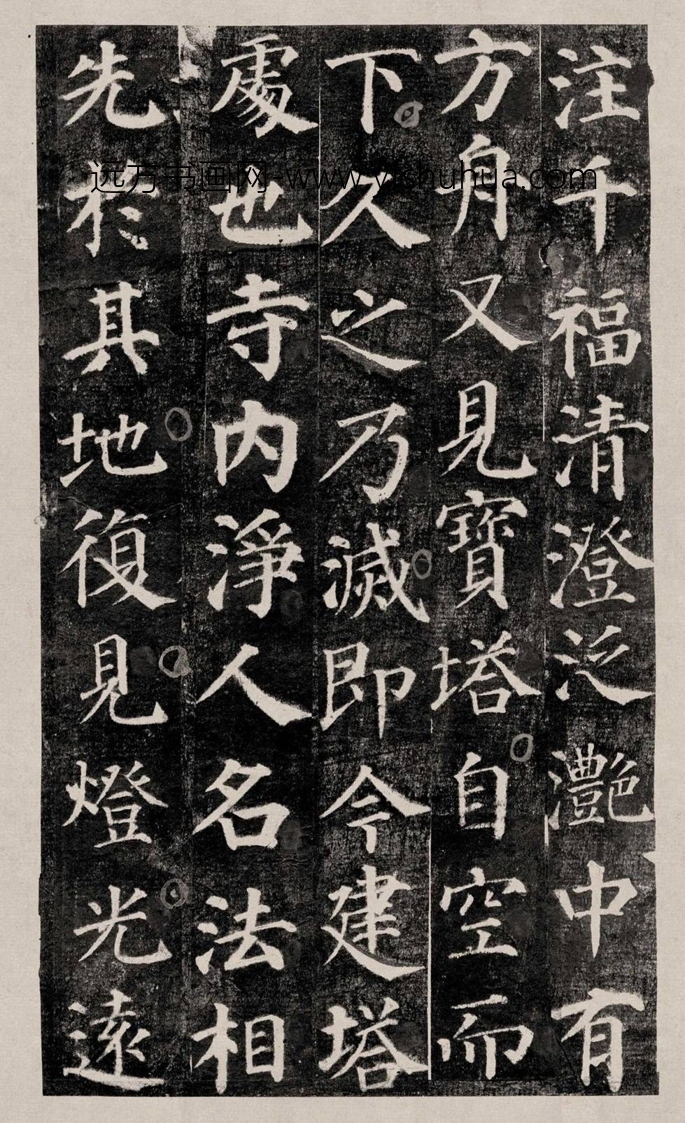 注千福清澄泛灩中有
方舟又見寶塔自空而
下久之乃滅即今建塔
處也寺内淨人名法相
先於其地復見燈光遠
远方书画网-www.yfshuhua.com